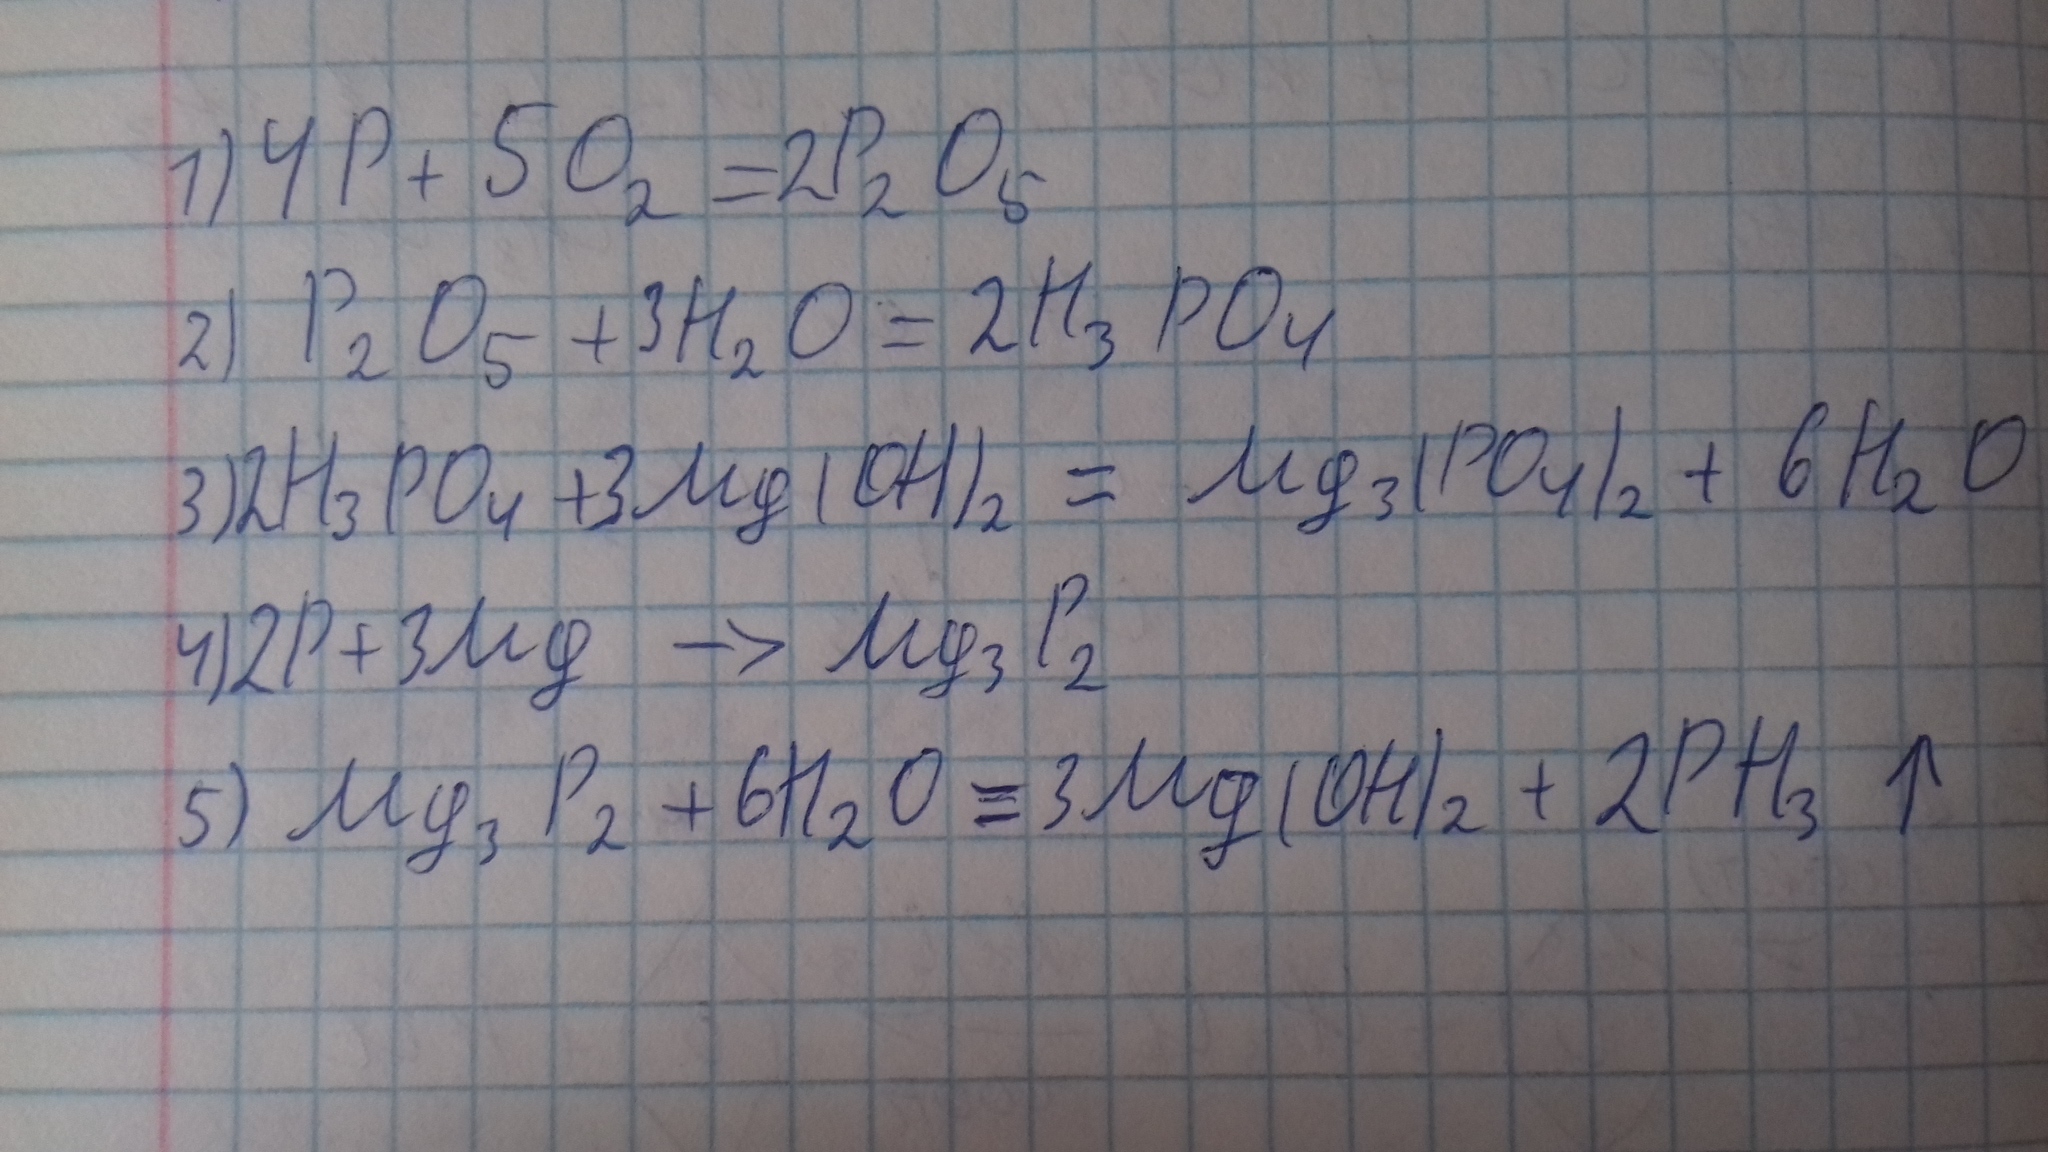 1) 4P + 5O₂ = 2P₂O₅
2) P₂O₅ + 3H₂O = 2H₃PO₄
3) 2H₃PO₄ + 3Mg(OH)₂ = Mg₃(PO₄)₂ + 6H₂O
4) 2P + 3Mg → Mg₃P₂
5) Mg₃P₂ + 6H₂O = 3Mg(OH)₂ + 2PH₃ ↑